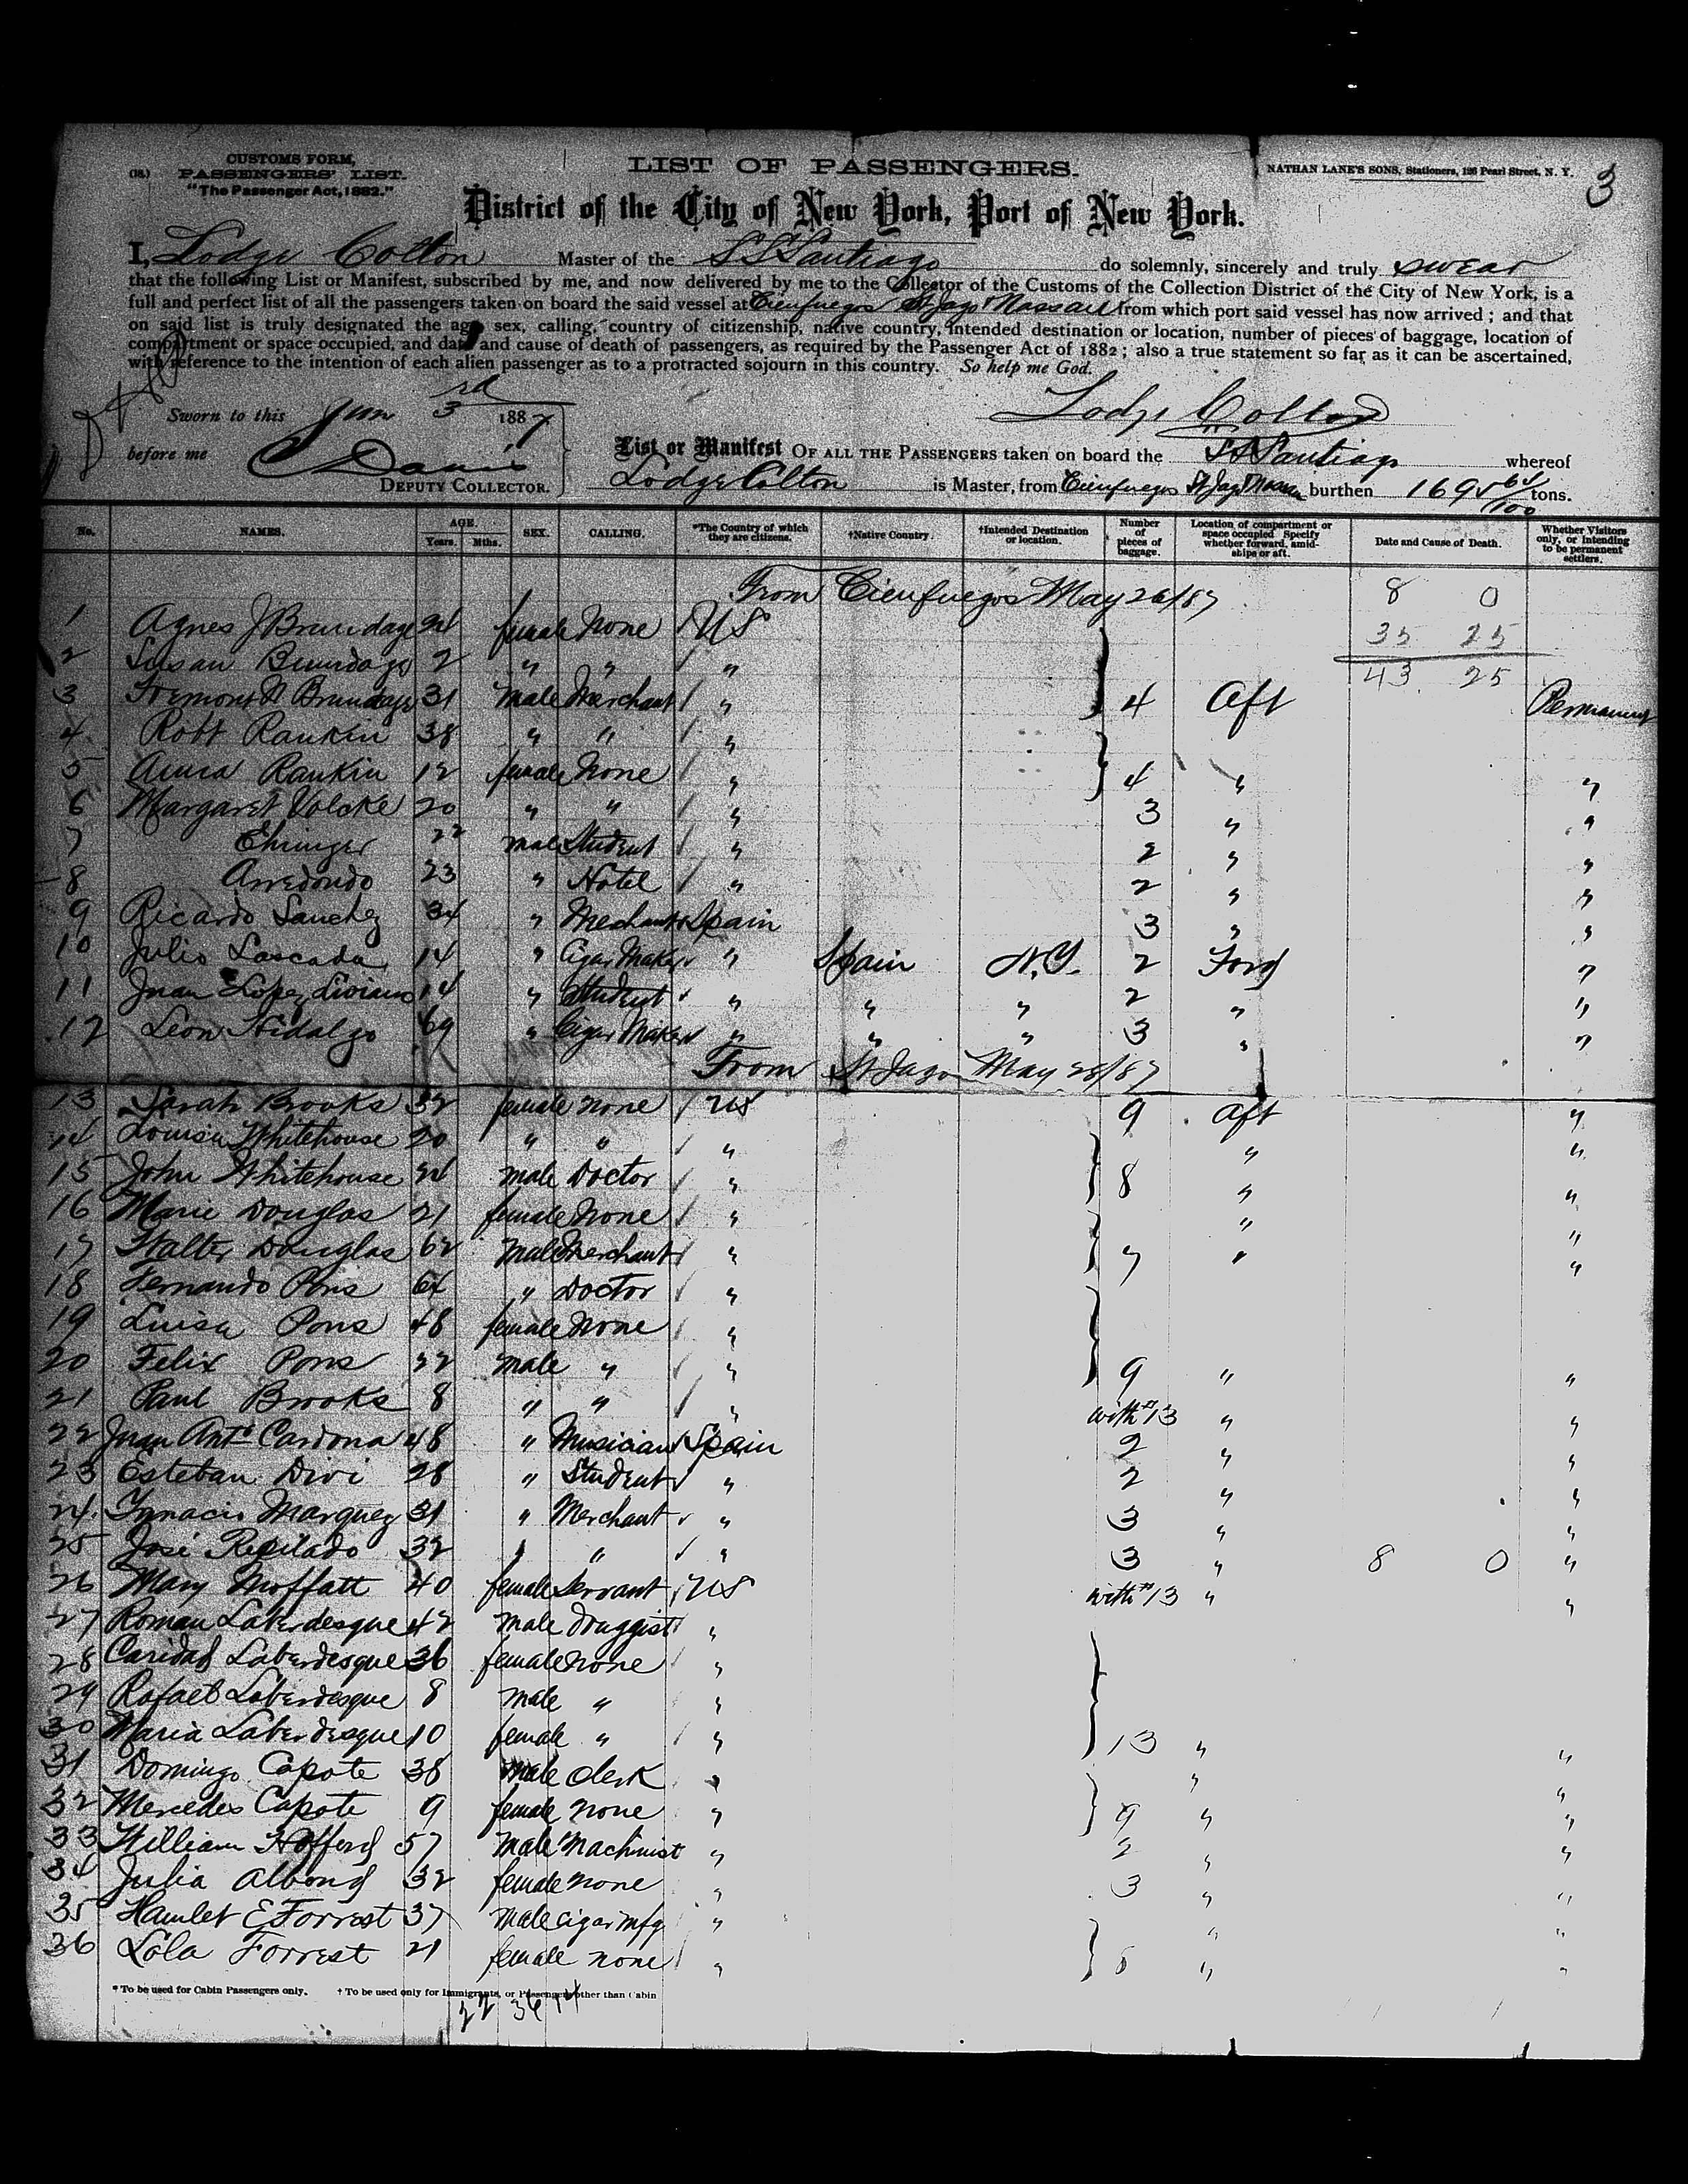 3
(18.)
CUSTOMS FORM,
PASSENGERS' LIST.
"The Passenger Act, 1882."
LIST OF PASSENGERS.
NATHAN LANE'S SONS, Stationers, 126 Pearl Street, N. Y.
District of the City of New York, Port of New York.
I, Lodge Colton Master of the SS Santiago do solemnly, sincerely and truly swear
that the following List or Manifest, subscribed by me, and now delivered by me to the Collector of the Customs of the Collection District of the City of New York, is a
full and perfect list of all the passengers taken on board the said vessel at Cienfuegos St Jago & Nassau from which port said vessel has now arrived; and that
on said list is truly designated the age, sex, calling, country of citizenship, native country, intended destination or location, number of pieces of baggage, location of
compartment or space occupied, and date and cause of death of passengers, as required by the Passenger Act of 1882; also a true statement so far as it can be ascertained,
with reference to the intention of each alien passenger as to a protracted sojourn in this country. So help me God.
Sworn to this Jun 3rd 1887
Lodge Colton
before me Davis
DEPUTY COLLECTOR.
List or Manifest OF ALL THE PASSENGERS taken on board the SS Santiago whereof
Lodge Colton is Master, from Cienfuegos St Jago Nassau burthen 1695 64/100 tons.
No. NAMES. AGE. Years. Mths. SEX. CALLING. *The Country of which they are citizens. †Native Country. †Intended Destination or location. Number of pieces of baggage. Location of compartment or space occupied Specify whether forward, amidships or aft. Date and Cause of Death. Whether Visitors only, or intending to be permanent settlers.
From Cienfuegos May 26/87 8 0
1 Agnes J Brundage 24 female None US 35 25
2 Susan Brundage 2 " " " 43 25
3 Fremont N Brundage 31 male Merchant " 4 Aft Permanent
4 Robt Rankin 38 " " "
5 Anna Rankin 12 female None " 4 " "
6 Margaret Volcke 20 " " " 3 " "
7 Ehinger 22 male Student " 2 " "
8 Arredondo 23 " Hotel " 2 " "
9 Ricardo Sanchez 34 " Merchant Spain 3 " "
10 Julio Lascada 14 " Cigar Maker " Spain N.Y. 2 Ford "
11 Juan Lopez 14 " Student " " " 2 " "
12 Leon Hidalgo 69 " Cigar Maker " " " 3 " "
From St Jago May 28/87
13 Sarah Brooks 32 female none US 9 Aft "
14 Louisa Whitehouse 20 " " " " "
15 John Whitehouse 24 male Doctor " 8 " "
16 Marie Douglas 21 female None " " "
17 Walter Douglas 62 male Merchant " 7 " "
18 Fernando Pons 64 " Doctor "
19 Luisa Pons 48 female None "
20 Felix Pons 22 male " " 9 " "
21 Paul Brooks 8 " " " with #13 " "
22 Juan Anto Cardona 48 " Musician Spain 2 " "
23 Esteban Divi 28 " Student " 2 " "
24 Ignacio Marquez 31 " Merchant " 3 " "
25 José Repilado 32 " " " 3 " 8 0 "
26 Mary Moffatt 40 female Servant US with #13 " "
27 Roman Laberdesque 42 male Druggist "
28 Caridad Laberdesque 36 female none "
29 Rafael Laberdesque 8 male " "
30 Maria Laberdesque 10 female " " 13 " "
31 Domingo Capote 38 male Clerk " " "
32 Mercedes Capote 9 female none " 9 " "
33 William Hofferd 57 male Machinist " 2 " "
34 Julia Albond 32 female none " 3 " "
35 Hamlet E Forrest 37 male cigar mfg " " "
36 Lola Forrest 21 female none " " "
* To be used for Cabin Passengers only. † To be used only for Immigrants, or Passengers other than Cabin
22 36 14